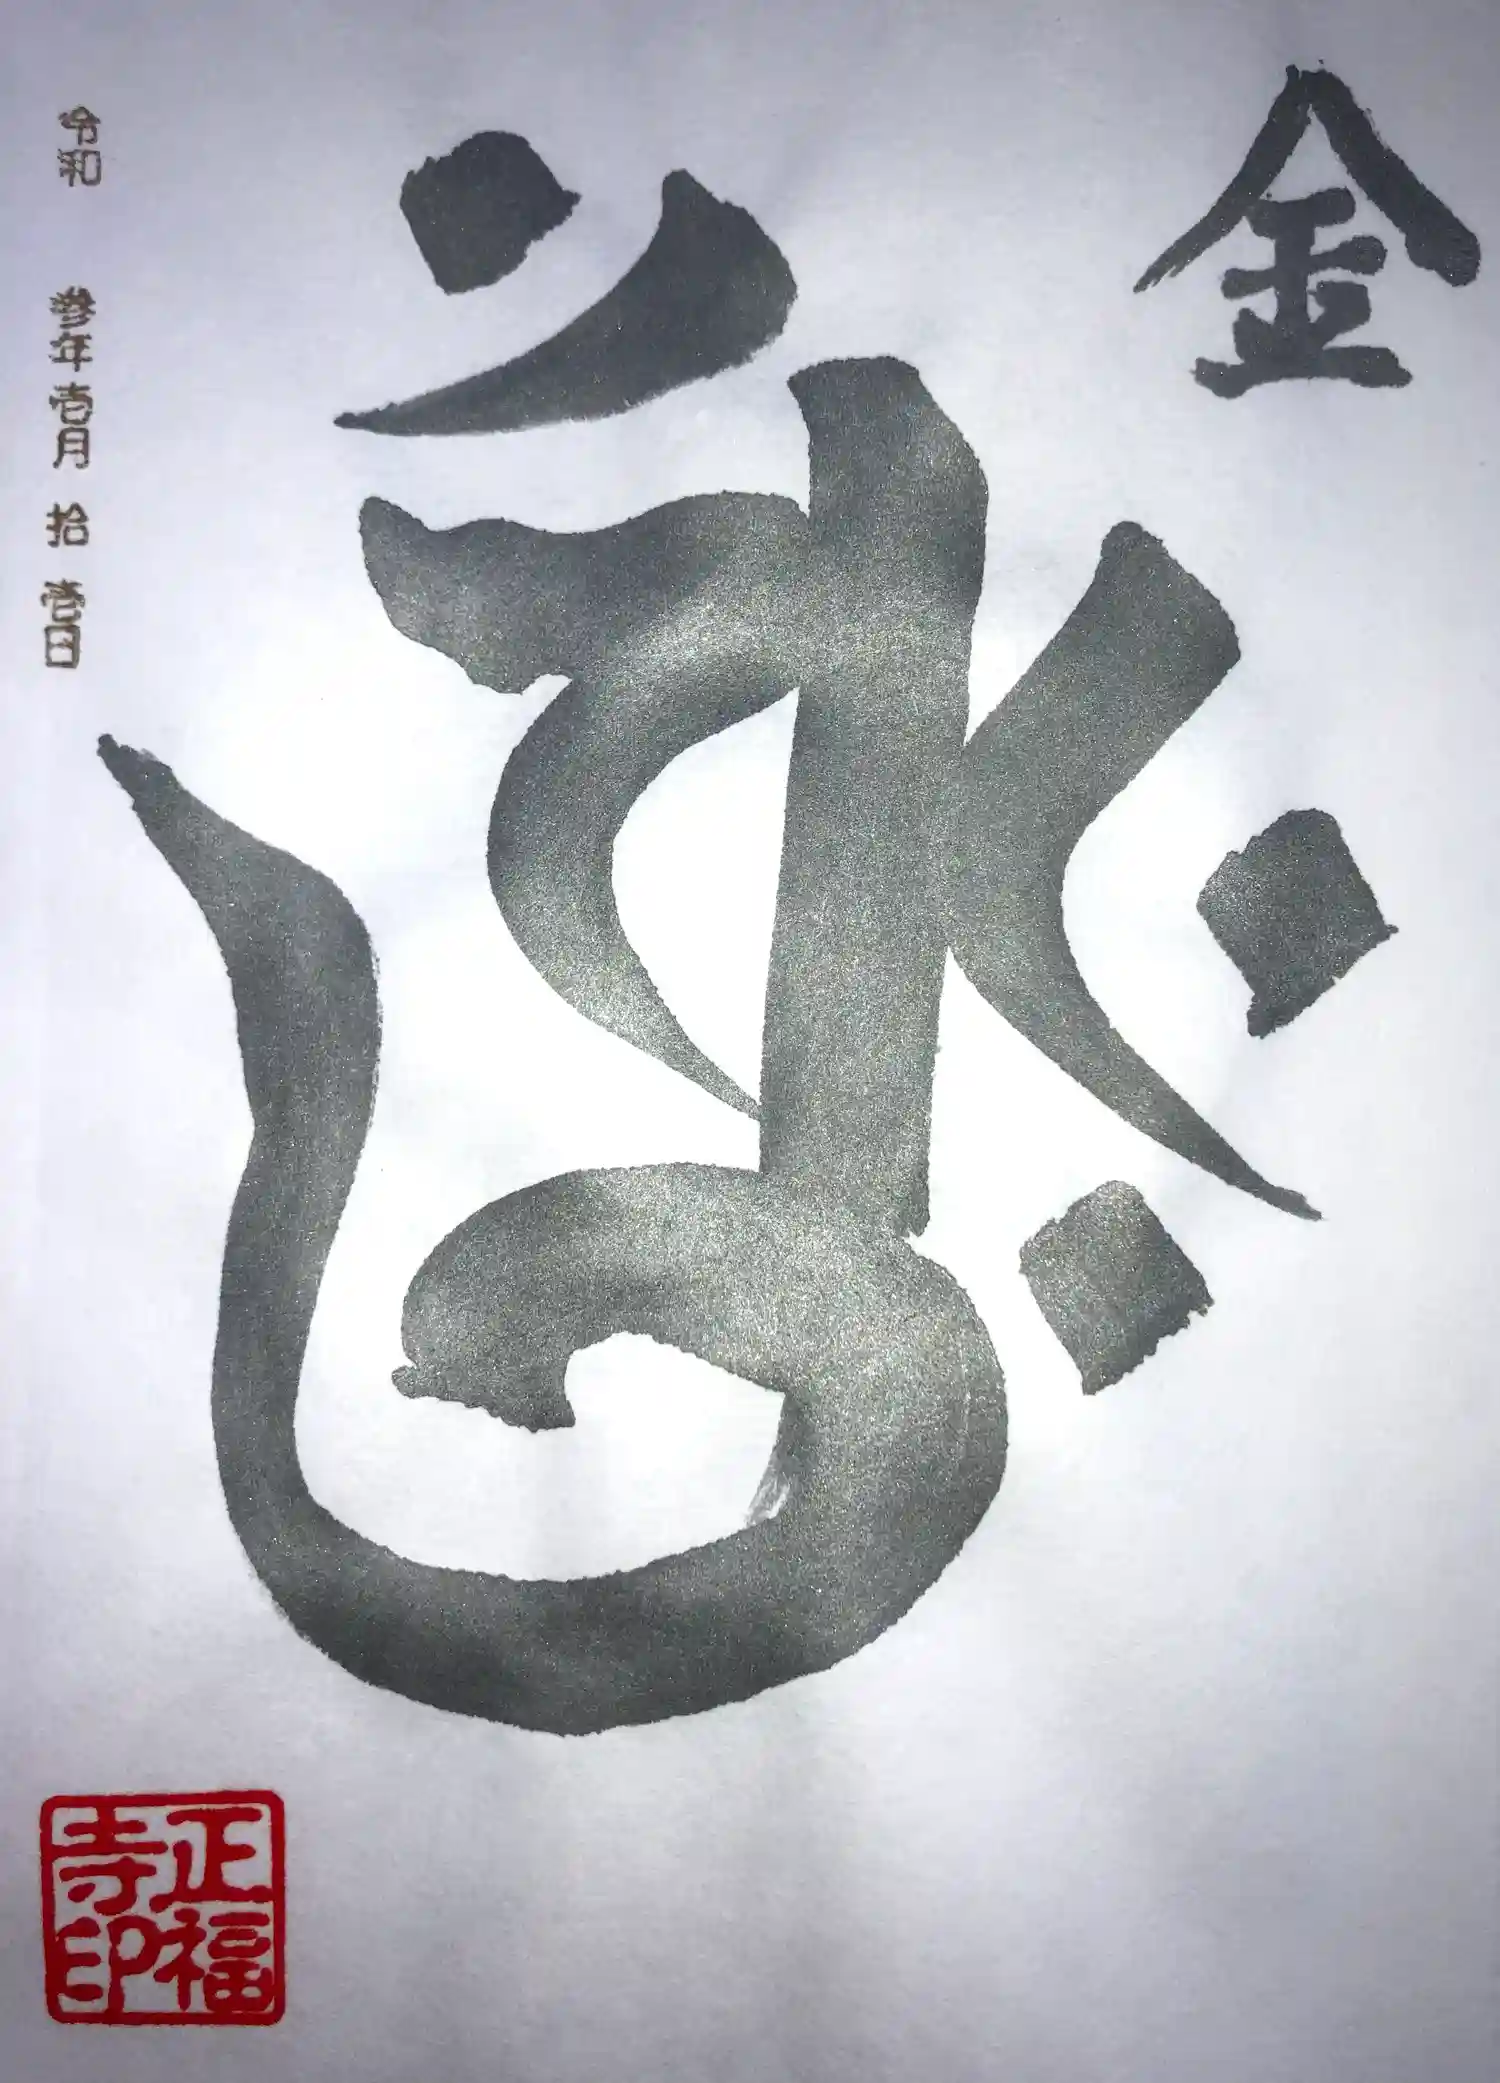 金
令和 参年壱月拾壱日
正福
寺印